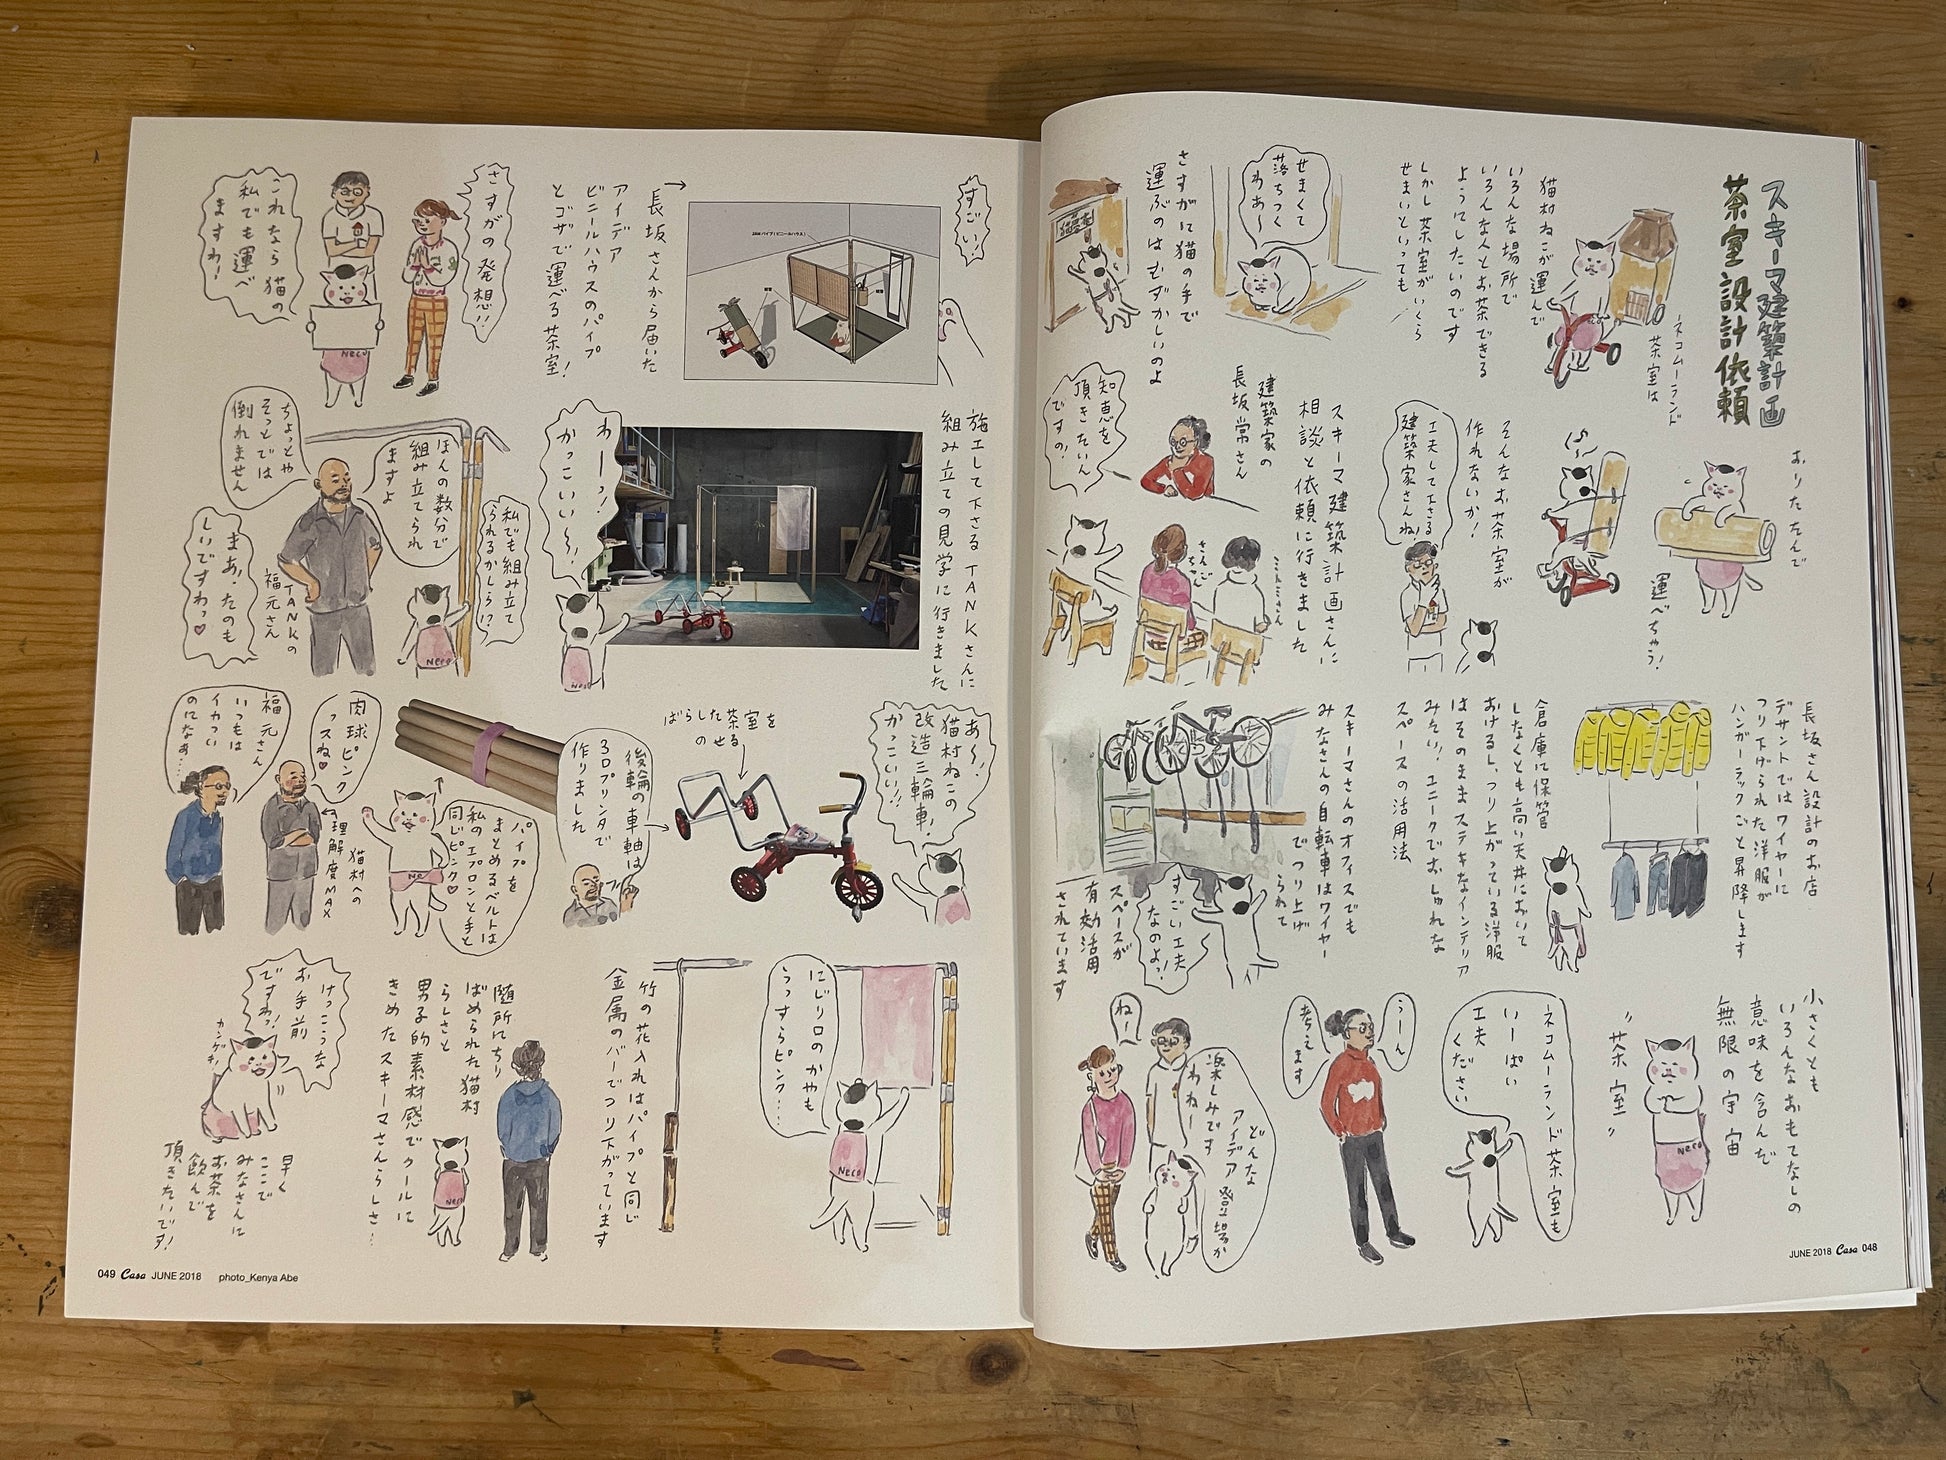 スキーマ建築計画
茶室設計依頼
ネコムーランド
茶室は
猫村ねこが運んで
いろんな場所で
いろんな人とお茶できる
ようにしたいのです
しかし茶室がいくら
せまいといっても
せまくて
落ちつく
わぁ〜
さすがに猫の手で
運ぶのはむずかしいのよ
おりたたんで
運べちゃう!
そんなお茶室が
作れないか!
工夫して下さる
建築家さんね!
スキーマ建築計画さんに
相談と依頼に行きました
建築家の
長坂常さん
知恵を
頂きたいん
ですの!
さんご
ちゃん
こんミさん
長坂さん設計のお店
デサントではワイヤーに
つり下げられた洋服が
ハンガーラックごと昇降します
倉庫に保管
しなくとも高い天井において
おけるし、つり上がっている洋服
はそのままステキなインテリア
みたい!ユニークでおしゃれな
スペースの活用法
スキーマさんのオフィスでも
みなさんの自転車はワイヤー
でつり上げ
られて
スペースが
有効活用
されています
すごい工夫
なのよっ!
小さくとも
いろんなおもてなしの
意味を含んだ
無限の宇宙
"茶室"
ネコムーランド茶室も
いーぱい
工夫
ください
うーん
考えます
どんな
アイデア登場か
楽しみです
わねー
ねー
JUNE 2018 Casa 048
すごい!
2500 パイプ(ビニールハウス)
長坂さんから届いた
アイデア
ビニールハウスのパイプ
とゴザで運べる茶室!
さすがの発想!!
これなら猫の
私でも運べ
ますわー!
Neco
施工して下さるTANKさんに
組み立ての見学に行きました
わーっ!
かっこいい〜!
Neco
私でも組み立て
られるかしら!?
ほんの数分で
組み立てられ
ますよ
ちょっとや
そっとでは
倒れません
TANKの
福元さん
まあ!たのも
しいですわっ♥
Neco
あ〜!
猫村ねこの
改造三輪車!
かっこいい!!
ばらした茶室を
のせる
後輪の車軸は
3Dプリンタで
作りました
パイプを
まとめるベルトは
私のエプロンと手と
同じピンク♡
Ne
猫村への
理解度MAX
肉球ピンク
っスね♥
福元さん
いつもは
イカつい
のになぁ…
にじり口のかやも
うっすらピンク…
Neco
竹の花入れはパイプと同じ
金属のバーでつり下がっています
随所にちり
ばめられた猫村
らしさと
男子的素材感でクールに
きめたスキーマさんらしさ…
Neco
けっこうな
お手前
ですわっ!
カンゲキ!
早く
ここで
みなさんに
お茶を
飲んで
頂きたいです!
049 Casa JUNE 2018 photo_Kenya Abe